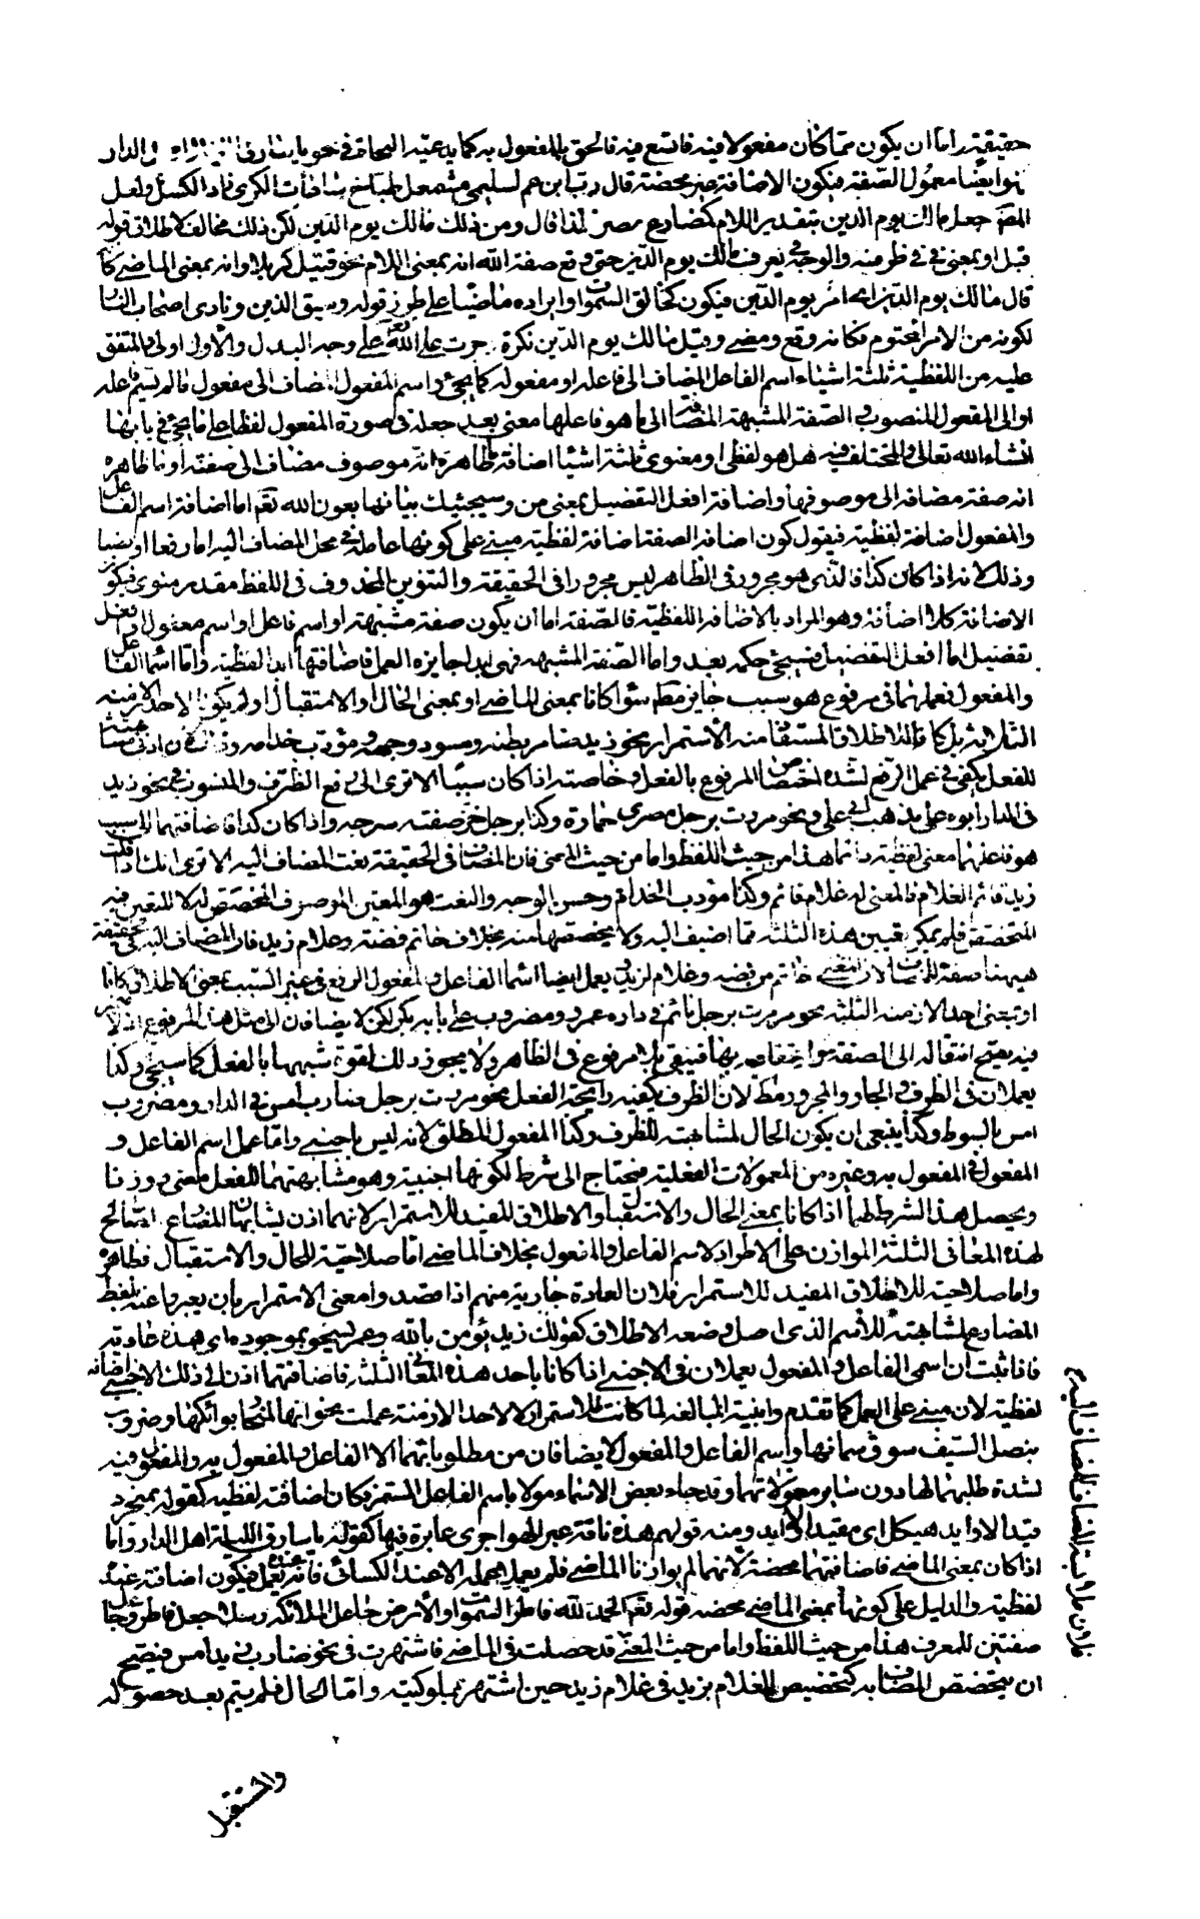 حقيقية واما ان يكون مما كان مفعولا فيه فاتسع فيه فالحق بالمفعول به كما يدعيه النحاة في نحو يا سارق الليلة اهل الدار
فهو ايضا معمول الصفة فيكون الاضافة غير محضة قال رب ابن عم لسليمى مشمعل طباخ ساعات الكرى زاد الكسل ولعل
المصـ جعل مالك يوم الدين بتقدير اللام كمصارع مصر لذا قال ومن ذلك مالك يوم الدين لكن ذلك مخالف لاطلاق قوله
قبل او بمعنى في في ظرفه والوجه في تعرف مالك يوم الدين حتى وقع صفة الله انه بمعنى اللام نحو قتيل كربلا وانه بمعنى الماضي كا
قال مالك يوم الدين اى امر يوم الدين فيكون كخالق السموات وايراده ماضيا على طرز قوله وسيق الذين ونادى اصحاب النار
لكونه من الامر المحتوم فكانه وقع ومضى وقيل مالك يوم الدين نكرة جرت على الله تعالى على وجه البدل والاول اولى والمتفق
عليه من اللفظية ثلثة اشياء اسم الفاعل المضاف الى فاعله او مفعوله كما يجئ واسم المفعول المضاف الى مفعول ما لم يسم فاعله
او الى المفعول المنصوب والصفة المشبهة المضافة الى ما هو فاعلها معنى بعد جعله في صورة المفعول لفظا على ما يجئ في بابها
انشاء الله تعالى والمختلف فيه هل هو لفظى او معنوى ثلثة اشيا اضافة ما ظاهره انه موصوف مضاف الى صفته او ما ظاهره
انه صفة مضافة الى موصوفها واضافة افعل التفضيل بمعنى من وسيجيئك بيانها بعون الله تعم اما اضافة اسم الفاعل
والمفعول اضافة لفظية فيقول كون اضافة الصفة اضافة لفظية مبنى على كونها عاملة في محل المضاف اليه اما رفعا او نصبا
وذلك لانه اذا كان كذا فالذى هو مجرور في الظاهر ليس مجرورا في الحقيقة والتنوين المحذوف في اللفظ مقدر منوى فيكون
الاضافة كلا اضافة وهو المراد بالاضافة اللفظية فالصفة اما ان يكون صفة مشبهة او اسم فاعل او اسم مفعول او افعل
تفضيل اما افعل التفضيل فسيجئ حكمه بعد واما الصفة المشبهة فهى ابدا جايزة العمل فاضافتها ابدا لفظية واما اسما الفاعل
والمفعول فعملهما في مرفوع هو سبب جايز مطلقا سواء كانا بمعنى الماضي او بمعنى الحال او الاستقبال او لم يكونا لاحد الازمنة
الثلاثة بل كانا للاطلاق المستفاد منه الاستمرار نحو زيد ضامر بطنه ومسود وجهه ومؤدب خدامه وذلك لان ادنى مشابهة
للفعل يكفى في عمل الرفع لشدة اختصاص المرفوع بالفعل وخاصة اذا كان سببا الا ترى الى رفع الظرف والمنسوب في نحو زيد
في الدار ابوه على مذهب ابي علي ونحو مررت برجل مصرى حماره وكذا برجل خز صفته سرجه واذا كان كذا فاضافتهما الى سبب
هو فاعلهما معنى لفظية دائما هذا من حيث اللفظ واما من حيث المعنى فان المضاف في الحقيقة نعت المضاف اليه الا ترى انك اذا قلت
زيد قائم الغلام فالمعنى له غلام قائم وكذا مؤدب الخدام وحسن الوجه والنعت هو المعين الموصوف المخصص له لا المتعين فيه
المتخصص فلم يمكن تعيين هذه الثلثة مما اضيف اليه ولا تخصصها منه بخلاف خاتم فضة وغلام زيد فان المضاف اليه في الحقيقة
هيهنا صفة للمضاف لان المعنى خاتم من فضة وغلام لزيد ويعمل ايضا اسما الفاعل والمفعول الرفع في غير السبب بمعنى الاطلاق كانا
او بمعنى احد الازمنة الثلثة نحو مررت برجل نائم في داره عمرو ومضروب على بابه بكر لكن لا يضافان الى مثل هذا المرفوع اذ لا ضمير
فيه يصح انتقاله الى الصفة وارتفاعه بها فيبقى بلا مرفوع في الظاهر ولا يجوز ذلك لقوة شبهها بالفعل كما سيجئ وكذا
يعملان في الظرف والجار والمجرور مط لان الظرف يكفيه رائحة الفعل نحو مررت برجل ضارب امس في الدار ومضروب
امس بالسوط وكذا ينبغي ان يكون الحال لمشابهته للظرف وكذا المفعول المطلق لانه ليس باجنبى واما عمل اسم الفاعل و
المفعول في المفعول به وغيره من المعمولات الفعلية فيحتاج الى شرط لكونها اجنبية وهو مشابهتهما للفعل معنى ووزنا
ويحصل هذا الشرط لهما اذا كانا بمعنى الحال والاستقبال او الاطلاق المفيد للاستمرار لانهما اذن يشابهان المضارع الصالح
لهذه المعاني الثلثة الموازن على الاطراد لاسم الفاعل والمفعول بخلاف الماضي اما صلاحيته للحال والاستقبال فظاهر
واما صلاحيته للاطلاق المفيد للاستمرار فلان العادة جارية منهم اذا قصدوا معنى الاستمرار بان يعبروا عنه بلفظ
المضارع لمشابهته للاسم الذى اصل وضعه الاطلاق كقولك زيد يؤمن بالله وعمرو يسخو بموجوده اى هذه عادته
فاذا ثبت ان اسمى الفاعل والمفعول يعملان في الاجنبى اذا كانا باحد هذه المعاني الثلثة فاضافتهما اذن الى ذلك الاجنبى اضافة
لفظية لان مبنى على العمل كما تقدم وابنية المبالغة لما كانت للاستمرار لا لاحد الازمنة عملت نحو انها لمنحار بوائكها وضروب
بنصل السيف سوق سمانها واسم الفاعل والمفعول لا يضافان من مطلوباتهما الا الى الفاعل والمفعول به والمفعول فيه
لشدة طلبهما لها دون سائر معمولاتهما وقد جاء بعض الاسماء مولا باسم الفاعل المستمر فكان اضافته لفظية كقوله بمنجرد
قيد الاوابد هيكل اى مقيد الاوابد ومنه قولهم هذه ناقة عبر الهواجر اى عابرة فيها كقوله يا سارق الليلة اهل الدار واما
اذا كان بمعنى الماضي فاضافتهما محضة لانهما لم يوازنا الماضي فلم يعملا عمله الا عند الكسائى فانه عنده يعمل فيكون اضافته عنده
لفظية والدليل على كونها بمعنى الماضي محضة قوله تعم الحمد لله فاطر السموات والارض جاعل الملائكة رسلا جعل فاطر وجاعل
صفتين للمعرف هذا من حيث اللفظ واما من حيث المعنى قد حصلت في الماضي فاشتهرت في نحو ضارب زيد امس فيصح
ان يتخصص المضاف به كتخصيص الغلام بزيد في غلام زيد حين اشتهر بمملوكيته واما الحال فلم يتم بعد حصوله
والمستقبل